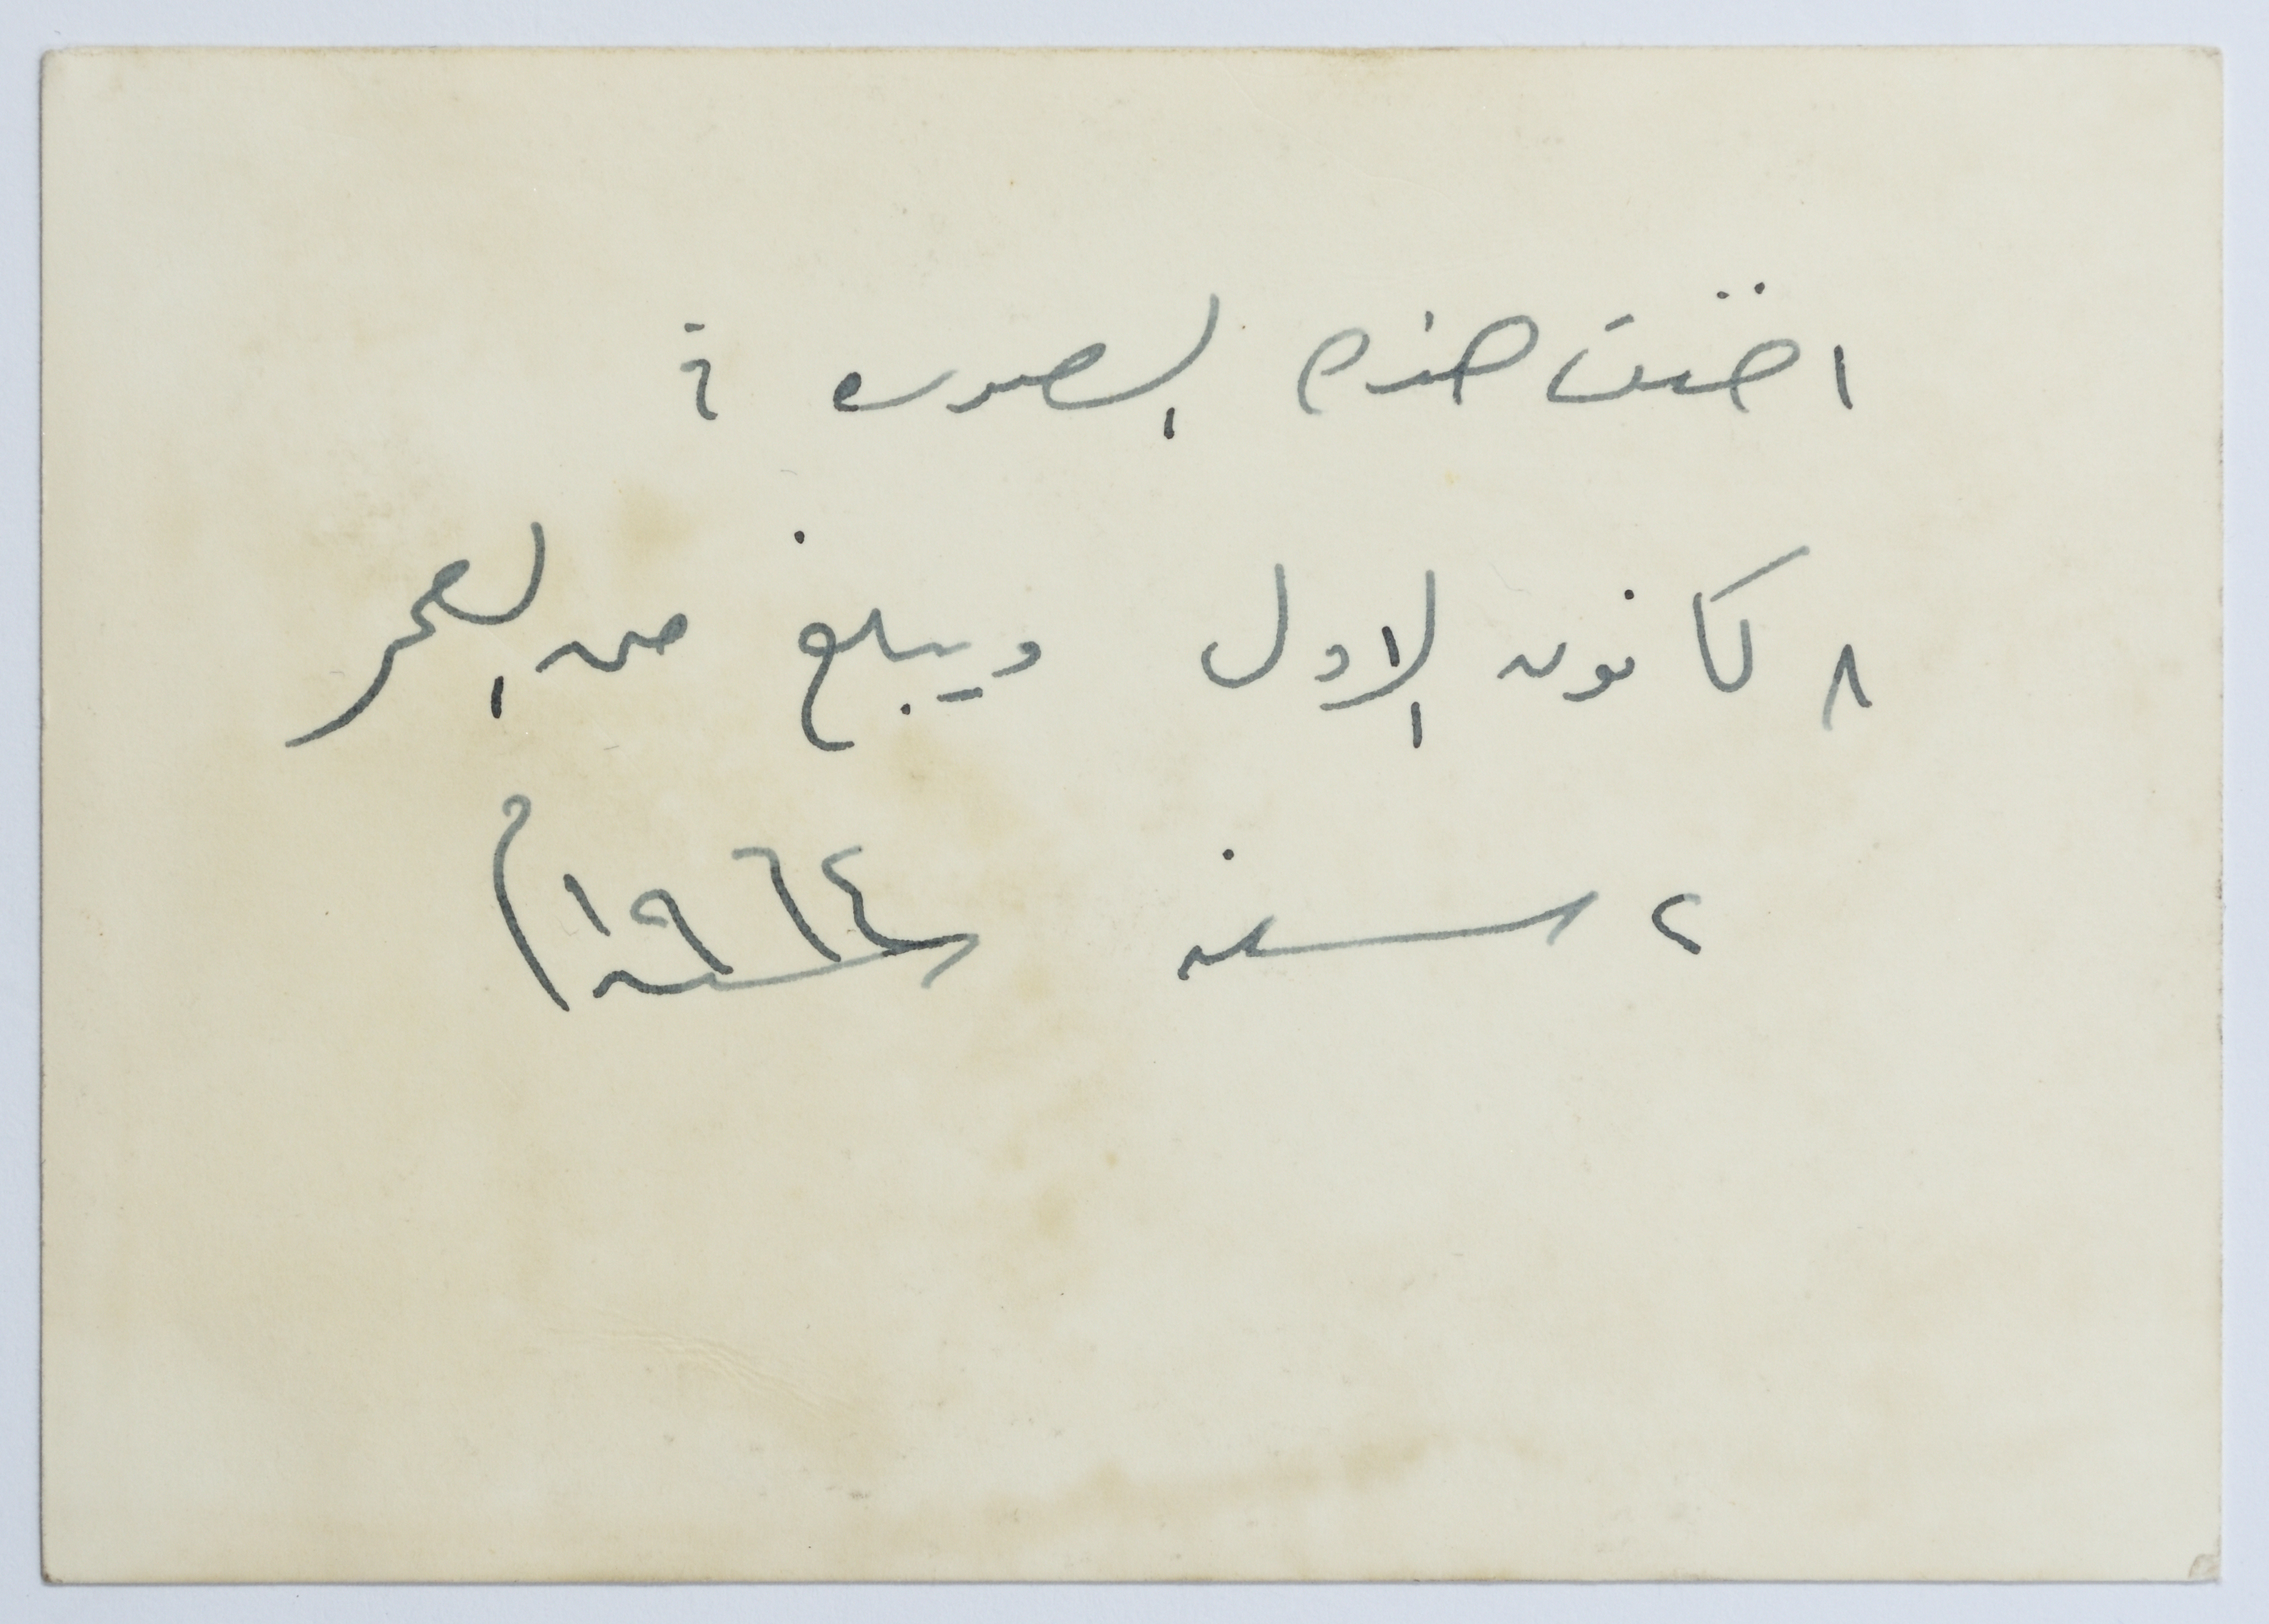 اخذت هذه الصوره في
٨ كانون الاول ويبلغ من العمر
٢ سنه ١٩٦٤ م